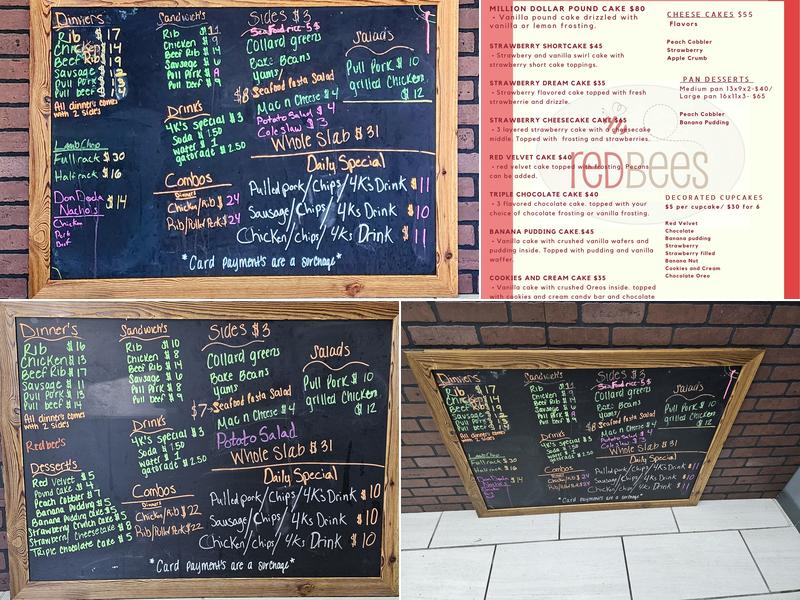 Dinners
Rib $17
Chicken $14
Beef Rib $19
Sausage
Pull Pork
Pull beef
All dinners comes
with 2 sides
Lamb Chop
Full rack $30
Half rack $16
$14
Nacho's
Chicken
Pork
Sandwich's
Rib $11
Chicken $9
Beef Rib $14
Sausage $6
Pull Pork $8
Pull Beef $9
Drinks
4K's special $3
Soda $1.50
water $1
gatorade $2.50
Combos
Dinner
Chicken/Rib $24
Rib/Pulled Pork $24
Sides $3
Seafood rice 5$
Collard greens
Bake Beans
yams
$8 Seafood Pasta Salad
Mac n Cheese $4
Potato Salad $4
Coleslaw $3
Whole Slab $31
Salads
Pull Pork $10
grilled Chicken
$12
Daily Special
Pulled pork/Chips/4K's Drink $11
Sausage/Chips/4K's Drink $10
Chicken/chips/4Ks Drink $11
*Card payment's are a surchage*
MILLION DOLLAR POUND CAKE $80
- Vanilla pound cake drizzled with
vanilla or lemon frosting.
STRAWBERRY SHORTCAKE $45
- Strawbery and vanilla swirl cake with
strawberry short cake toppings.
STRAWBERRY DREAM CAKE $35
- Strawberry flavored cake topped with fresh
strawberrie and drizzle.
STRAWBERRY CHEESECAKE CAKE $65
- 3 layered strawberry cake with a cheesecake
middle. Topped with frosting and strawberries.
RED VELVET CAKE $40
- red velvet cake topped with frosting. Pecans
can be added.
TRIPLE CHOCOLATE CAKE $40
- 3 flavored chocolate cake. topped with your
choice of chocolate frosting or vanilla frosting.
BANANA PUDDING CAKE.$45
- Vanilla cake with crushed vanilla wafers and
pudding inside. Topped with pudding and vanilla
wafer.
COOKIES AND CREAM CAKE $35
- Vanilla cake with crushed Oreos inside. topped
with cookies and cream candy bar and chocolate
redBEES
CHEESE CAKES $55
Flavors
Peach Cobbler
Strawberry
Apple Crumb
PAN DESSERTS
Medium pan 13x9x2-$40/
Large pan 16x11x3- $65
Peach Cobbler
Banana Pudding
DECORATED CUPCAKES
$5 per cupcake/ $30 for 6
Red Velvet
Chocolate
Banana pudding
Strawberry
Strawberry filled
Banana Nut
Cookies and Cream
Chocolate Oreo
Dinner's
Rib $16
Chicken $13
Beef Rib $17
Sausage $11
Pull Pork $13
Pull beef $14
All dinners comes
with 2 sides
Redbee's
Dessert's
Red Velvet $5
Pound cake $4
Peach Cobbler $7
Banana Pudding $5
Banana Pudding Cake $5
Strawberry Crunch Cake $5
Strawberry Cheesecake $8
Triple Chocolate Cake $5
Sandwich's
Rib $10
Chicken $8
Beef Rib $14
Sausage $6
Pull Pork $8
Pull Beef $9
Drinks
4K's special $3
Soda $1.50
water $1
gatorade $2.50
Combos
Dinner
Chicken/Rib $22
Rib/Pulled Pork $22
Sides $3
Collard greens
Bake Beans
yams
$7 Seafood Pasta Salad
Mac n Cheese $4
Potato Salad
Whole Slab $31
Salads
Pull Pork $10
grilled Chicken
$12
Daily Special
Pulled pork/Chips/4K's Drink $10
Sausage/Chips/4K's Drink $10
Chicken/chips/4Ks Drink $10
*Card payment's are a surchage*
Dinners
Rib $17
Chicken $14
Beef Rib $19
Sausage
Pull Pork
Pull beef
All dinners comes
with 2 sides
Lamb Chop
Full rack $30
Half rack $16
$14
Sandwich's
Rib $11
Chicken $9
Beef Rib $14
Sausage $6
Pull Pork $8
Pull Beef $9
Drinks
4K's special $3
Soda $1.50
water $1
gatorade $2.50
Combos
Dinner
Chicken/Rib $24
Rib/Pulled Pork $24
Sides $3
Seafood rice 5$
Collard greens
Bake Beans
yams
$8 Seafood Pasta Salad
Mac n Cheese $4
Potato Salad $4
Coleslaw $3
Whole Slab $31
Salads
Pull Pork $10
grilled Chicken
$12
Daily Special
Pulled pork/Chips/4K's Drink $11
Sausage/Chips/4K's Drink $10
Chicken/chips/4Ks Drink $11
*Card payment's are a surchage*